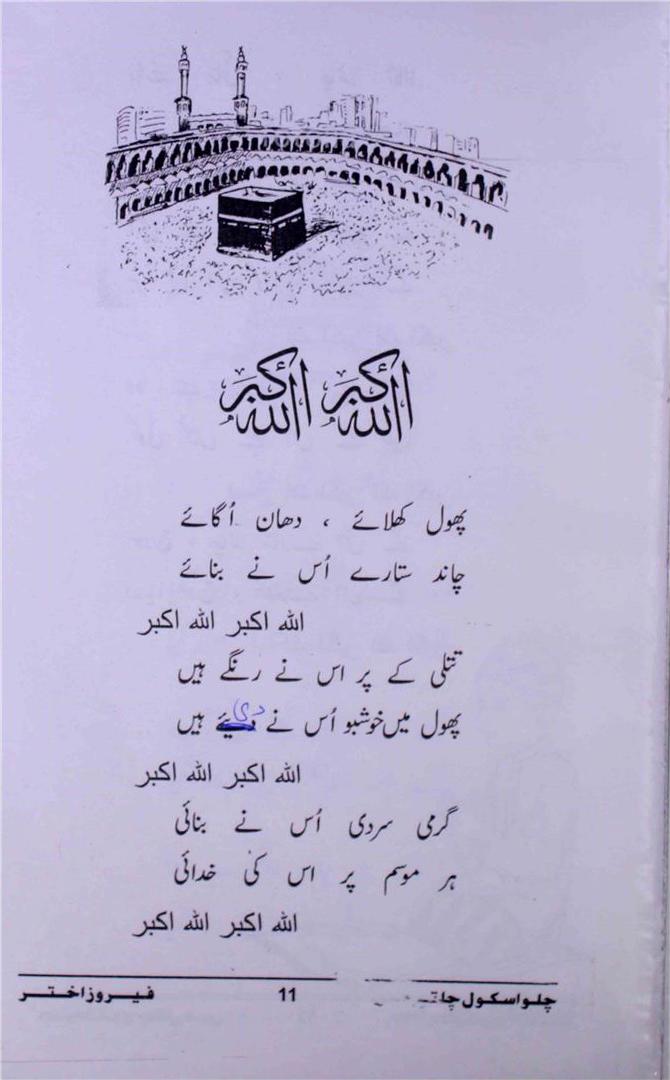 اللہ اکبر اللہ اکبر
پھول کھلائے ، دھان اُگائے
چاند ستارے اُس نے بنائے
اللہ اکبر اللہ اکبر
تتلی کے پر اس نے رنگے ہیں
پھول میں خوشبو اُس نے دی ہیں
اللہ اکبر اللہ اکبر
گرمی سردی اُس نے بنائی
ہر موسم پر اس کی خدائی
اللہ اکبر اللہ اکبر
چلو اسکول چلتے 11 فیروز اختر